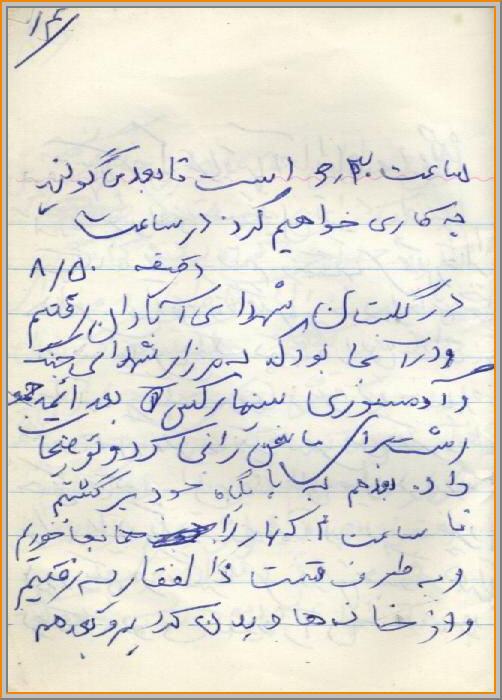 ۱۴
ساعت ۳۰/ ۶ است تا بعد می گویند
چه کاری خواهیم کرد. در ساعت
۸/۵۰ دقیقه
در گلستان شهدای آبادان رفتیم
و در آنجا بود که به مزار شهدای جنگ
و آدمسوزی سینما رکس بعد
برای ما سخن رانی کرد و توضیحات
داد. بعد هم به پایگاه خود برگشتیم
تا ساعت نهار را همانجا خوردیم
و به طرف قسمت ذالفقاریه رفتیم
و از خانه ها دیدن کردیم و بعد هم